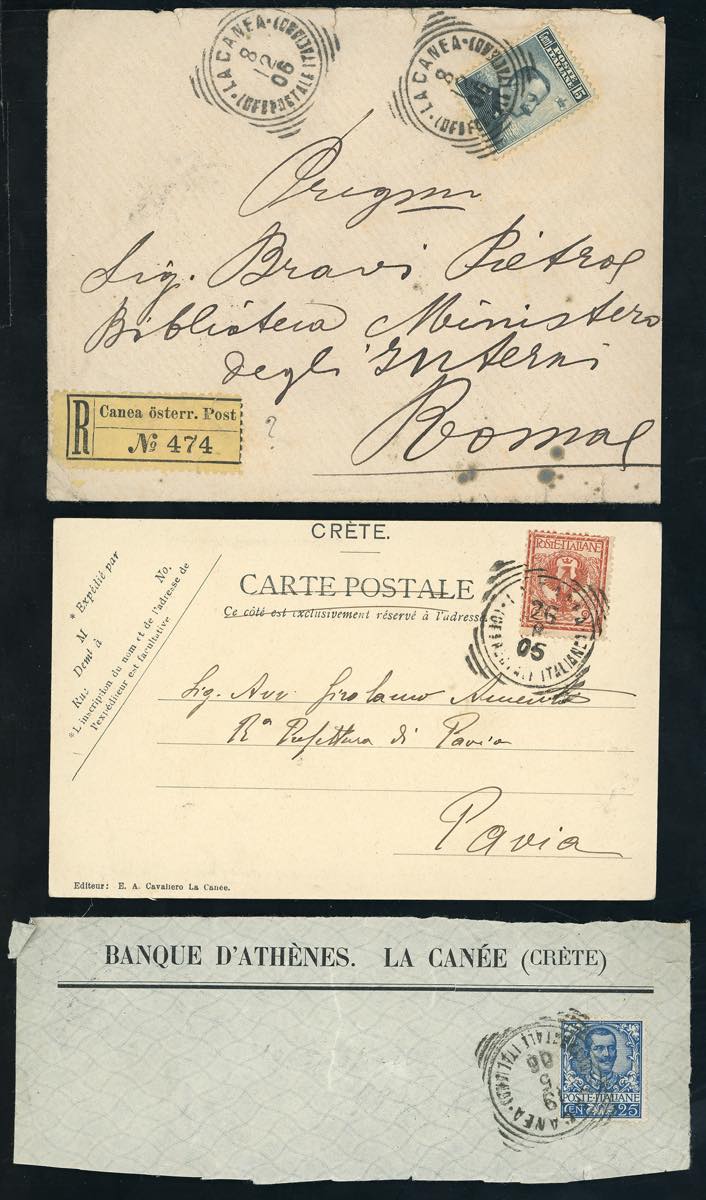 LA CANEA
8
12
06
LA CANEA
8
POSTE ITALIANE
Cent. 15
Pregmo
Sig. Bravi Pietro
Biblioteca Ministero
degli Interni
Roma
R
Canea österr. Post
No 474
?
CRÈTE.
CARTE POSTALE
Ce côté est exclusivement réservé à l'adresse.
No.
* Expédié par
M
Demt à
Ru:
*L'inscription du nom et de l'adresse de
l'expéditeur est facultative
POSTE·ITALIANE
26
05
ITALIANE
Sig. Avv. Girolamo
Ra Prefettura di Pavia
Pavia
Editeur: E. A. Cavaliero La Canée.
BANQUE D'ATHÈNES. LA CANÉE (CRÈTE)
CANEA
06
POSTE·ITALIANE
CENT. 25